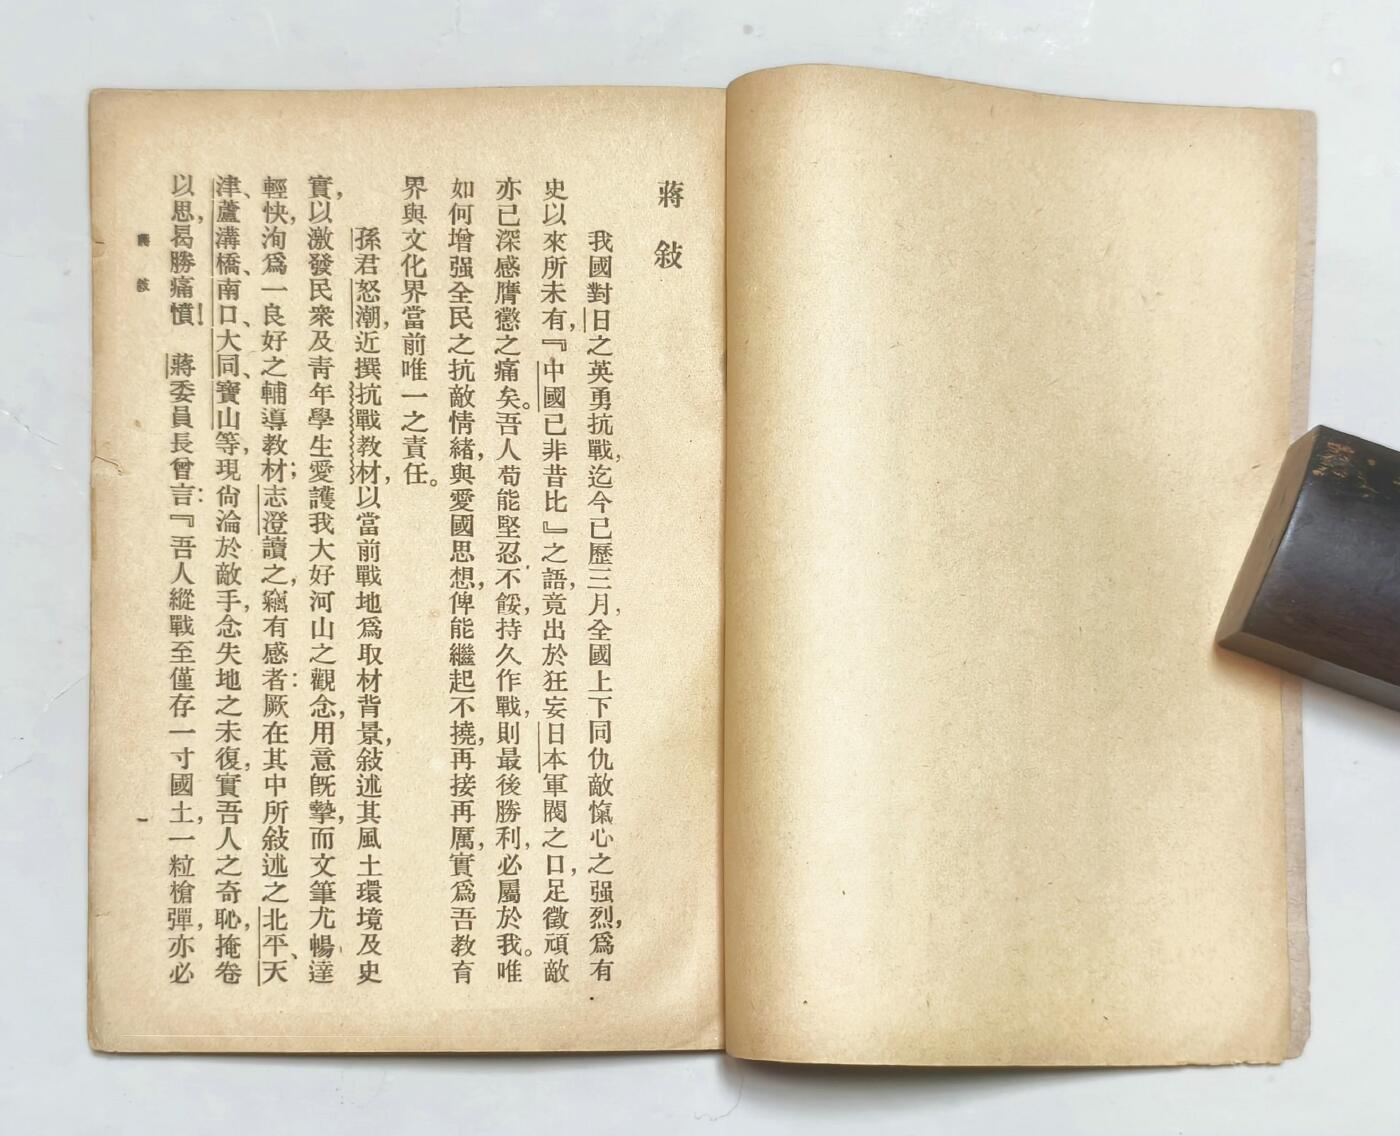 蔣敍
我國對日之英勇抗戰,迄今已歷三月,全國上下同仇敵愾心之强烈,爲有
史以來所未有,『中國已非昔比』之語,竟出於狂妄日本軍閥之口,足徵頑敵
亦已深感膺懲之痛矣。吾人苟能堅忍不餒,持久作戰,則最後勝利,必屬於我。唯
如何增强全民之抗敵情緒,與愛國思想,俾能繼起不撓,再接再厲,實爲吾教育
界與文化界當前唯一之責任。
孫君怒潮,近撰抗戰教材,以當前戰地爲取材背景,敍述其風土環境及史
實,以激發民衆及靑年學生愛護我大好河山之觀念,用意旣摯,而文筆尤暢達
輕快,洵爲一良好之輔導教材;志澄讀之,竊有感者:厥在其中所敍述之北平、天
津、蘆溝橋、南口、大同、寶山等,現尙淪於敵手,念失地之未復,實吾人之奇恥,掩卷
以思,曷勝痛憤! 蔣委員長曾言:『吾人縱戰至僅存一寸國土,一粒槍彈,亦必
蔣敍
一